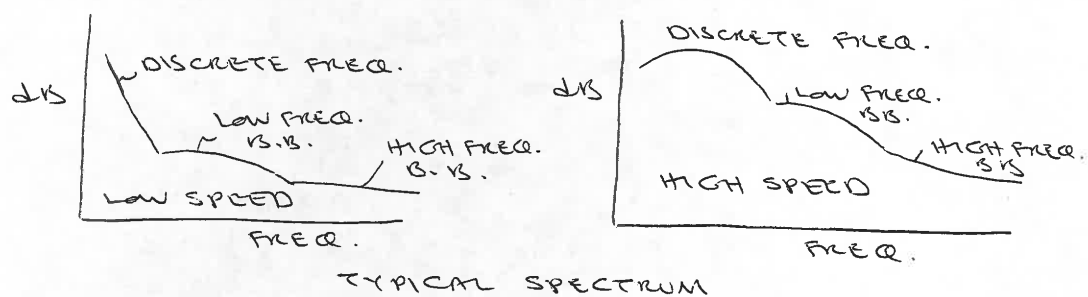 dB
DISCRETE FREQ.
LOW FREQ.
B.B.
HIGH FREQ.
B.B.
LOW SPEED
FREQ.
dB
DISCRETE FREQ.
LOW FREQ.
BB.
HIGH FREQ.
BB
HIGH SPEED
FREQ.
TYPICAL SPECTRUM